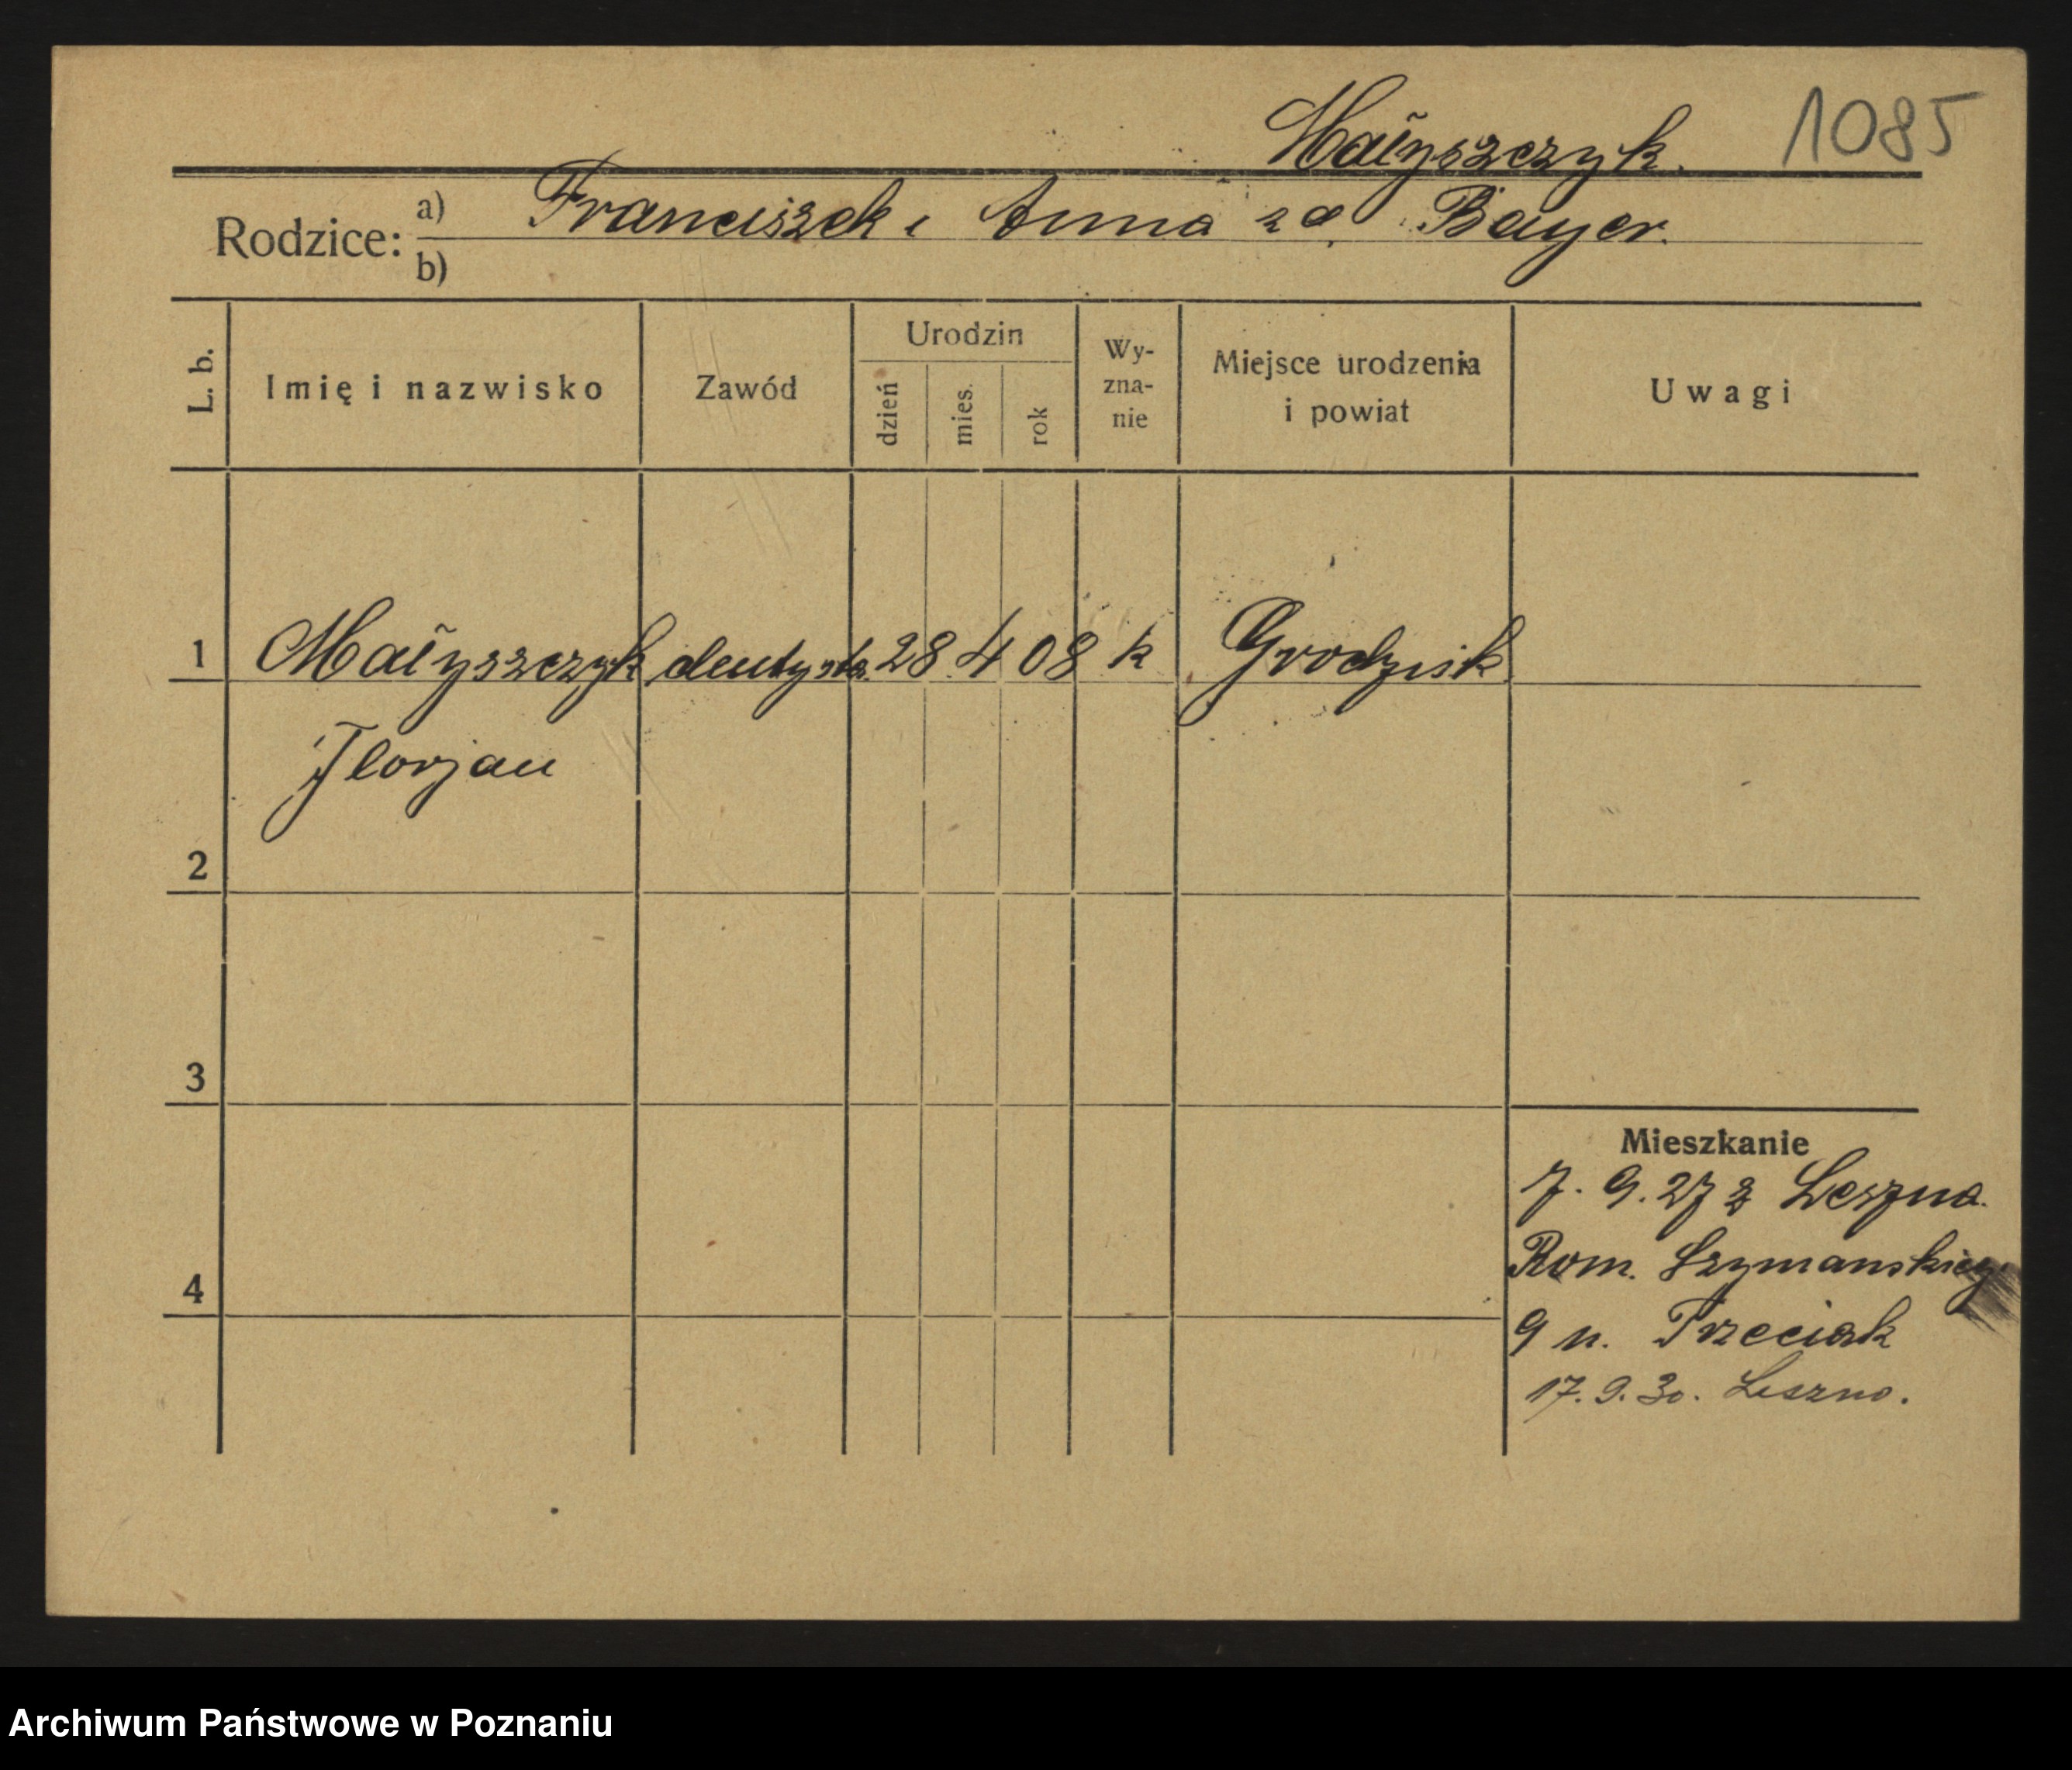 Małyszczyk. 1085
Rodzice: a) Franciszek i Anna zd. Bayer.
b)
L. b. Imię i nazwisko Zawód Urodzin dzień mies. rok Wy-zna-nie Miejsce urodzenia i powiat Uwagi
1 Małyszczyk dentysta 28 4 08 k Grodzisk
Florjan
2
3
Mieszkanie
7. 9. 27 z Leszna.
Rom. Szymanskieg
4
9 u. Trzeciak
17. 9. 30. Leszno.
Archiwum Państwowe w Poznaniu